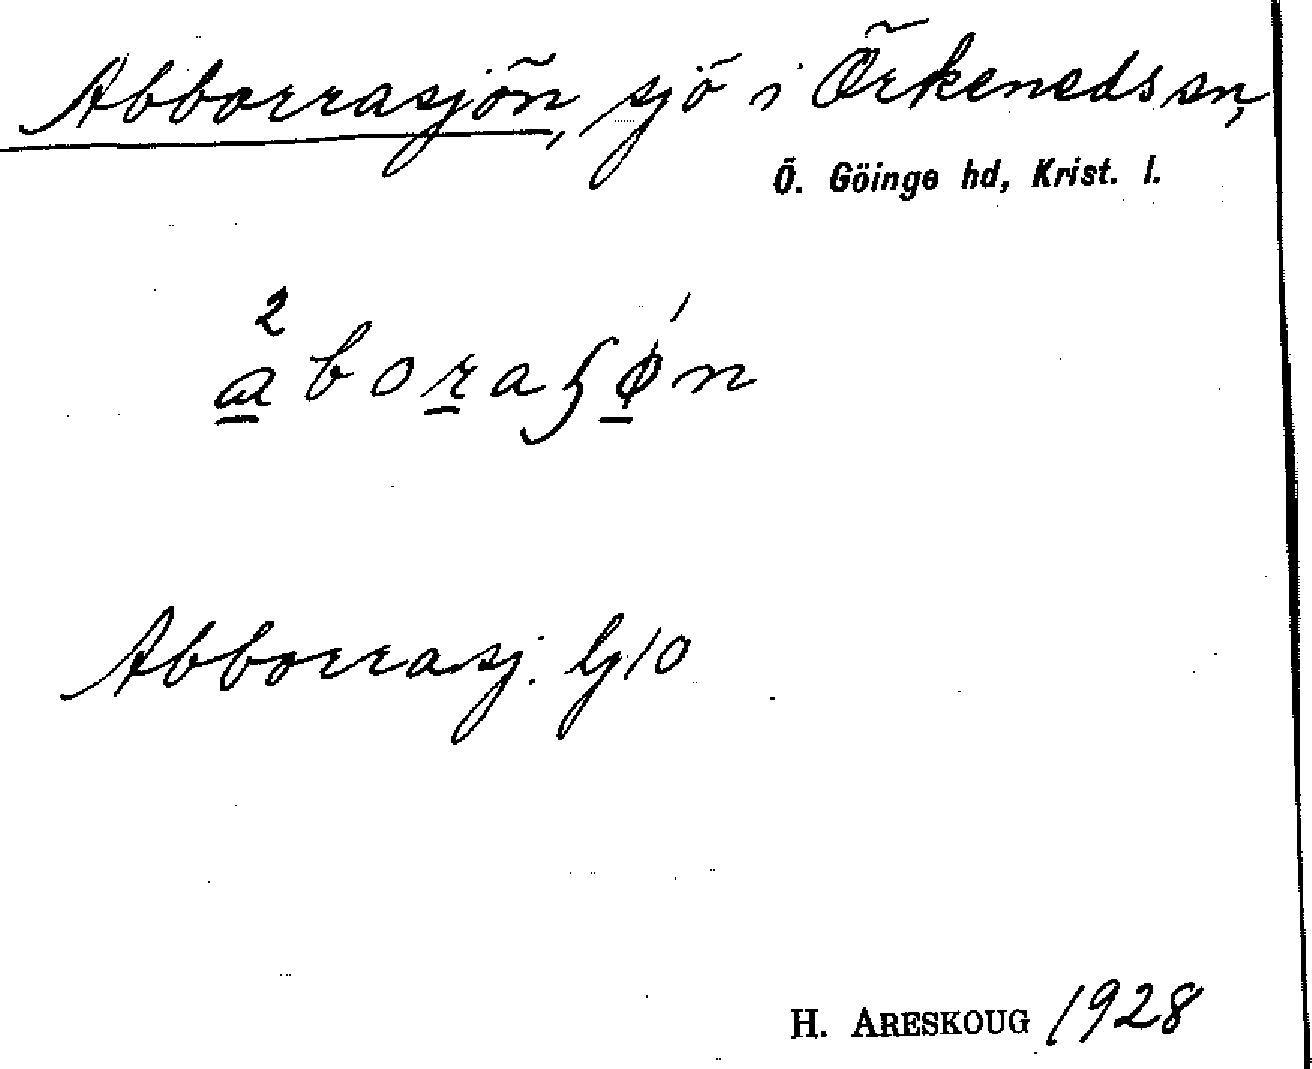 Abborrasjön, sjö i Örkeneds sn,
Ö. Göinge hd, Krist. l.
²aboraʃǿn
Abborrasj. lj 10
H. ARESKOUG 1928